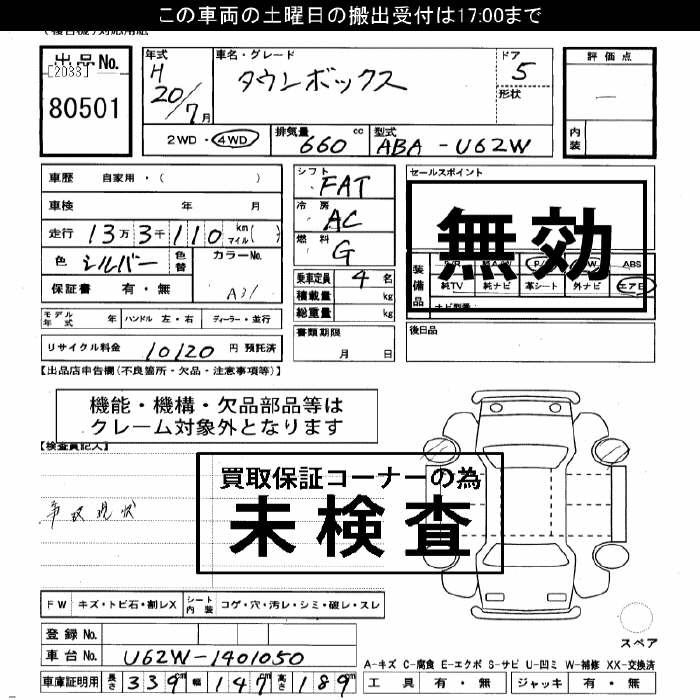 この車両の土曜日の搬出受付は17:00まで
出品No.
[2033]
80501
年式
H
20/7月
車名・グレード
タウンボックス
ドア
5
形状
評価点
内装
2WD・4WD
排気量
660 cc
型式
ABA-U62W
車歴 自家用・( )
車検 年 月
走行 13万3千110 km マイル( )
色 シルバー
色替
カラーNo.
A31
保証書 有・無
シフト
FAT
冷房
AC
燃料
G
セールスポイント
無効
装備品
ABS
純TV 純ナビ 革シート 外ナビ エアB
乗車定員 4 名
積載量 kg
総重量 kg
モデル年式 年
ハンドル 左・右
ディーラー・並行
書類期限
月 日
後日品
リサイクル料金 10120 円 預託済
【出品店申告欄(不良箇所・欠品・注意事項等)】
機能・機構・欠品部品等は
クレーム対象外となります
【検査員記入】
買取保証コーナーの為
未検査
事故現状
FW キズ・トビ石・割レX
シート内装 コゲ・穴・汚レ・シミ・破レ・スレ
スペア
登録No.
車台No. U62W-1401050
A-キズ C-腐食 E-エクボ S-サビ U-凹ミ W-補修 XX-交換済
車庫証明用 長さ 339m 幅 147m 高さ 189m
工具 有・無 ジャッキ 有・無